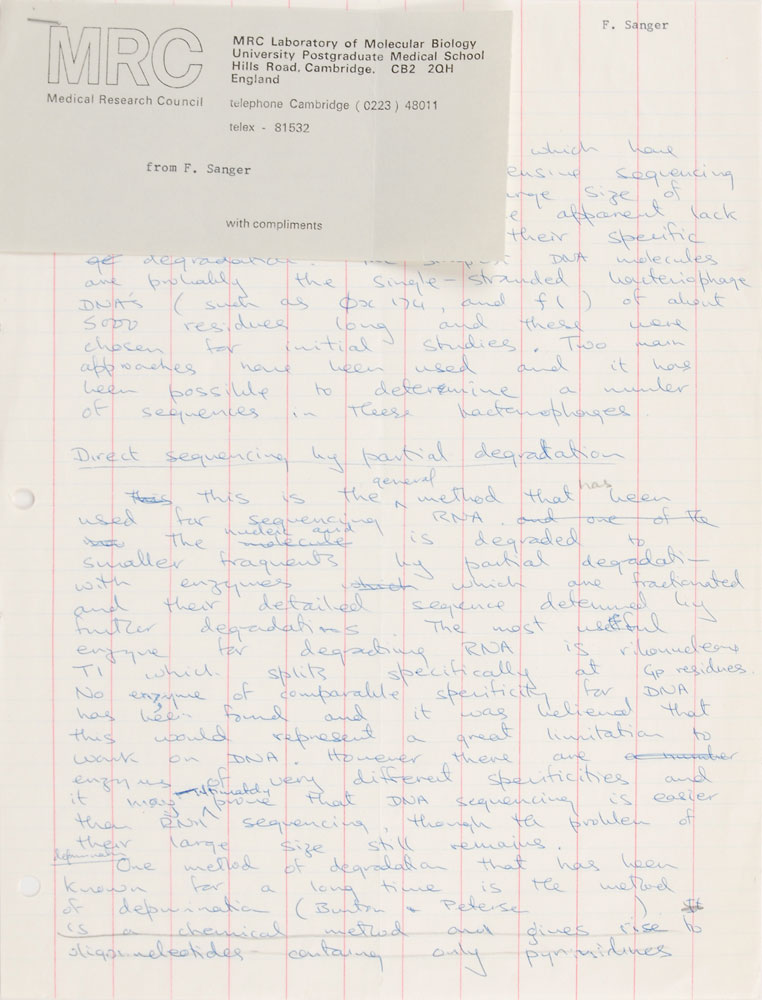 F. Sanger
MRC
Medical Research Council
MRC Laboratory of Molecular Biology
University Postgraduate Medical School
Hills Road, Cambridge, CB2 2QH
England
telephone Cambridge (0223) 48011
telex - 81532
from F. Sanger
with compliments
which have
ensive sequencing
size of
apparent lack
their specific
degradation. DNA molecules
are probably the single-stranded bacteriophage
DNA's (such as ϕx 174, and f1) of about
5000 residues long and these were
chosen for initial studies. Two main
approaches have been used and it has
been possible to determine a number
of sequences in these bacteriophages.
Direct sequencing by partial degradation
this this is the general method that has been
used for sequencing RNA. and one of the
The molecule nucleic acid is degraded to
smaller fragments by partial degradati-
with enzymes which are fractionated
and their detailed sequence determined by
further degradations. The most useful
enzyme for degrading RNA is ribonuclease
T1 which splits specifically at Gp residues.
No enzyme of comparable specificity for DNA
has been found and it was believed that
this would represent a great limitation to
work on DNA. However there are a number
enzymes of very different specificities and
it may ultimately prove that DNA sequencing is easier
than RNA sequencing, though the problem of
their large size still remains.
depurination
One method of degradation that has been
known for a long time is the method
of depurination (Burton + Peterse )
is a chemical method and gives rise to
oligonucleotides containg only pyrimidines